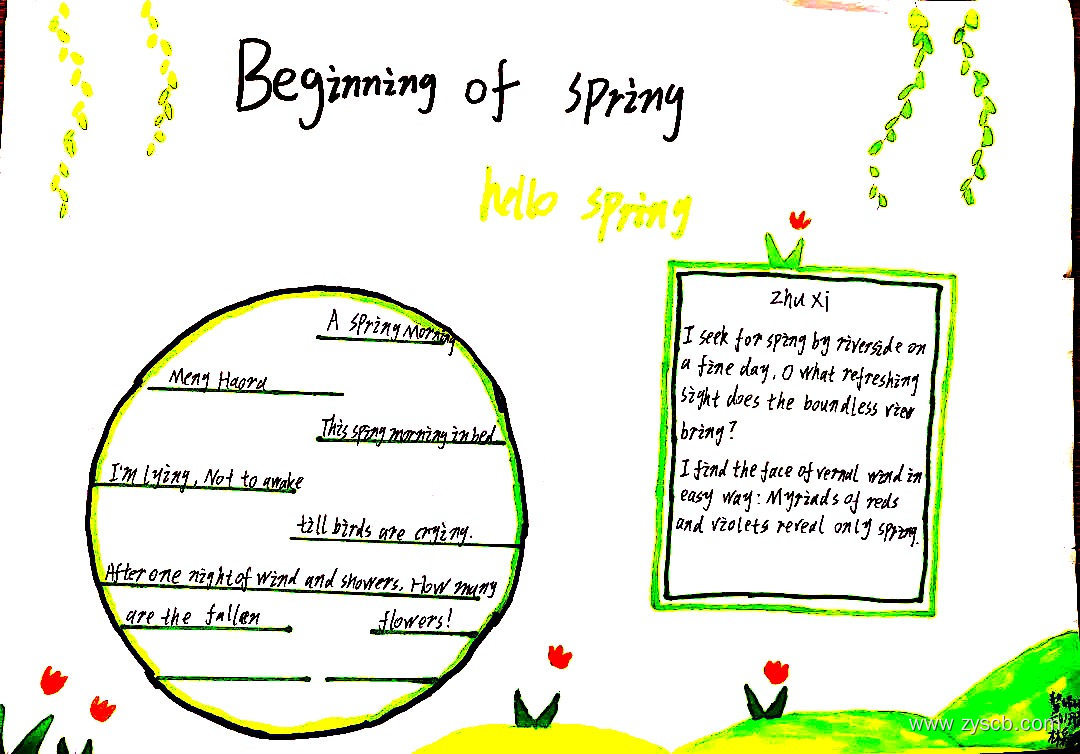 Beginning of spring
hello spring
A spring Morning
Meng Haora
This sping morning in bed
I'm lying, Not to awake
till birds are crying.
After one night of wind and showers. How many
are the fallen flowers!
zhu xi
I seek for sping by riverside on
a fine day, O what refreshing
sight does the boundless view
bring?
I find the face of vernal wind in
easy way: Myriads of reds
and violets reveal only spring.
www.zyscb.com